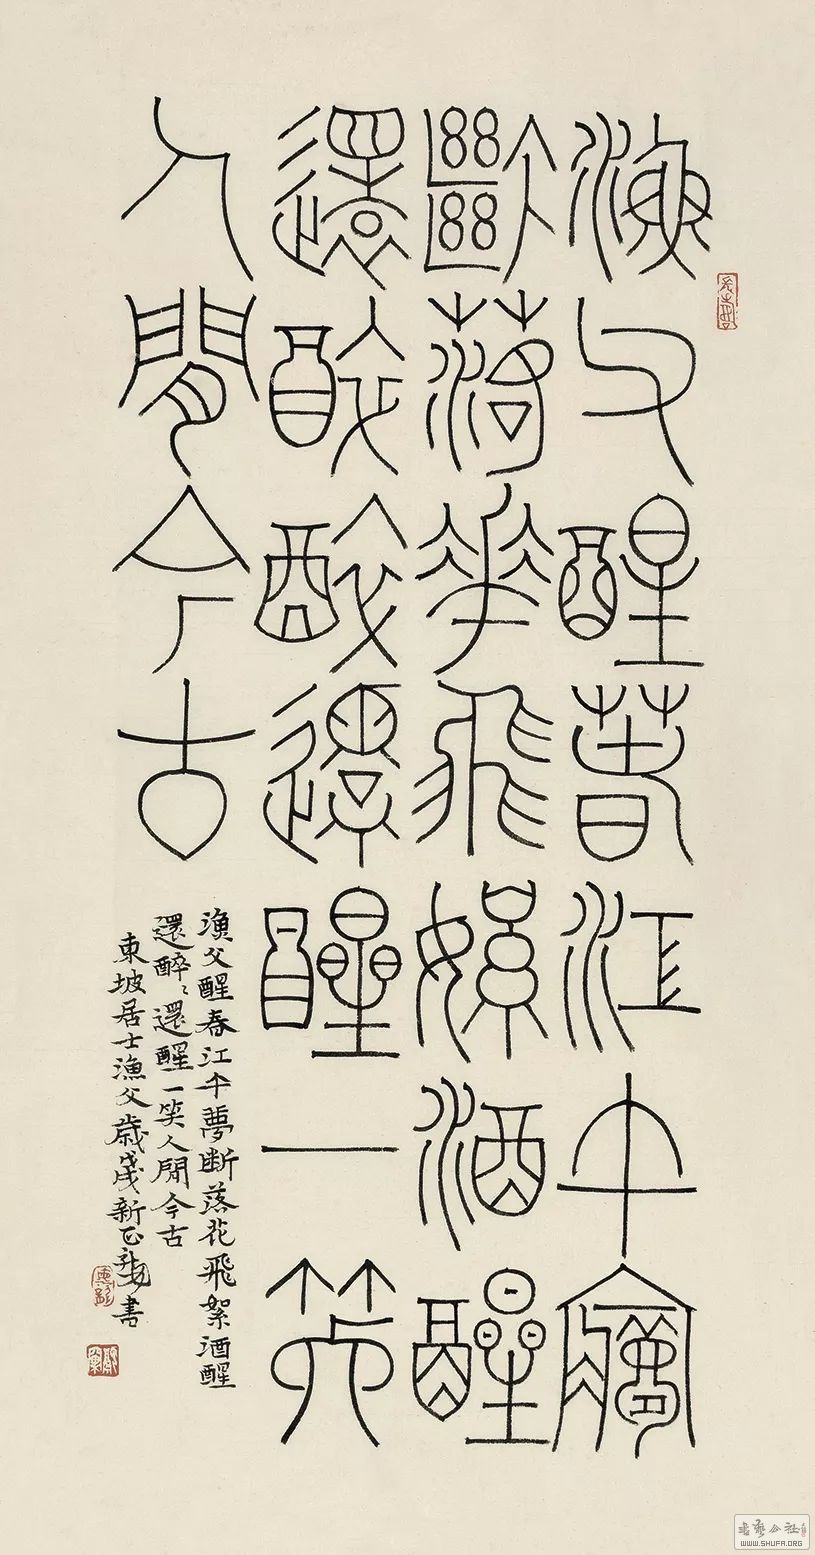 漁父醒春江午夢
斷落花飛絮酒醒
還醉醉還醒一笑
人間今古
漁父醒春江午夢断落花飛絮酒醒
還醉〻還醒一笑人間今古
東坡居士漁父歲戊戌新正 書
書藝公社
WWW.SHUFA.ORG